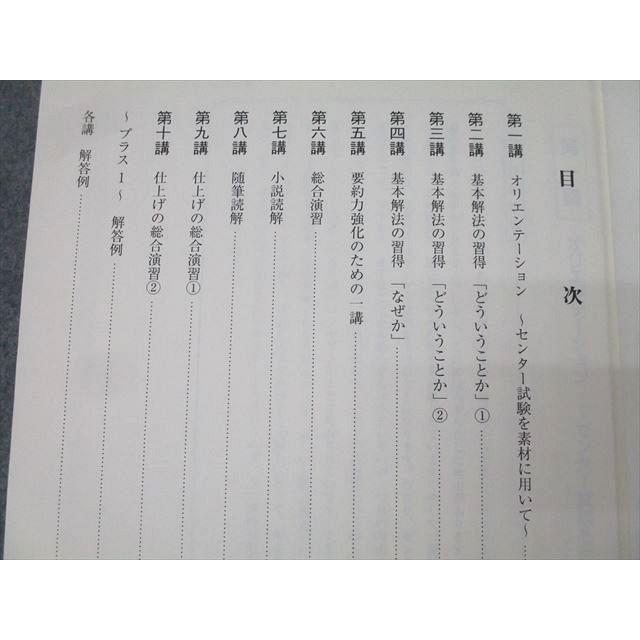 目次
第一講 オリエンテーション ～センター試験を素材に用いて～
第二講 基本解法の習得 「どういうことか」①
第三講 基本解法の習得 「どういうことか」②
第四講 基本解法の習得 「なぜか」
第五講 要約力強化のための一講
第六講 総合演習
第七講 小説読解
第八講 随筆読解
第九講 仕上げの総合演習①
第十講 仕上げの総合演習②
～プラス1～ 解答例
各講 解答例